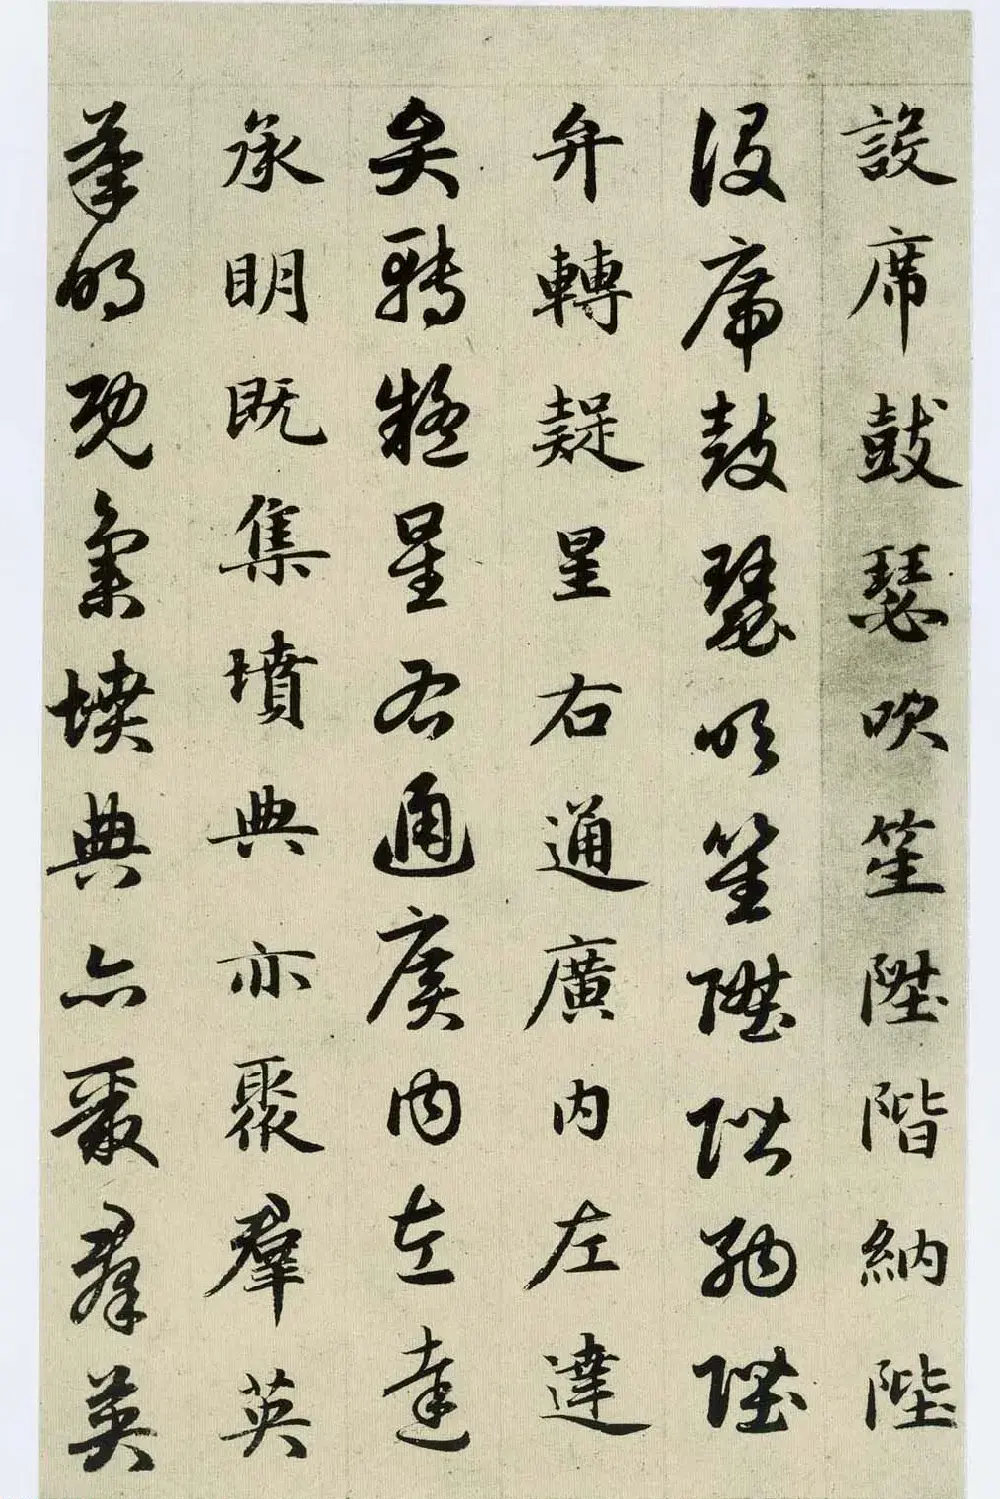 設席鼓瑟吹笙陞階納陛
設席鼓瑟吹笙陞階納陛
弁轉疑星右通廣內左達
弁轉疑星右通廣內左達
承明既集墳典亦聚群英
承明既集墳典亦聚群英